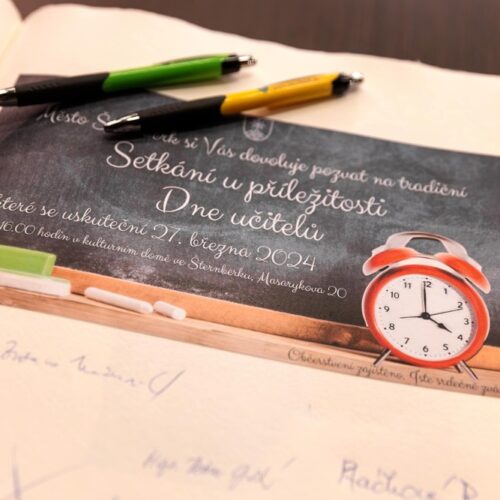 Město Š rk si Vás dovoluje pozvat na tradiční
Setkání u příležitosti
Dne učitelů
které se uskuteční 27. března 2024
16.00 hodin v kulturním domě ve Šternberku, Masarykova 20
12
11
10
9
8
7
6
5
4
3
2
1
Občerstvení zajištěno. Jste srdečně